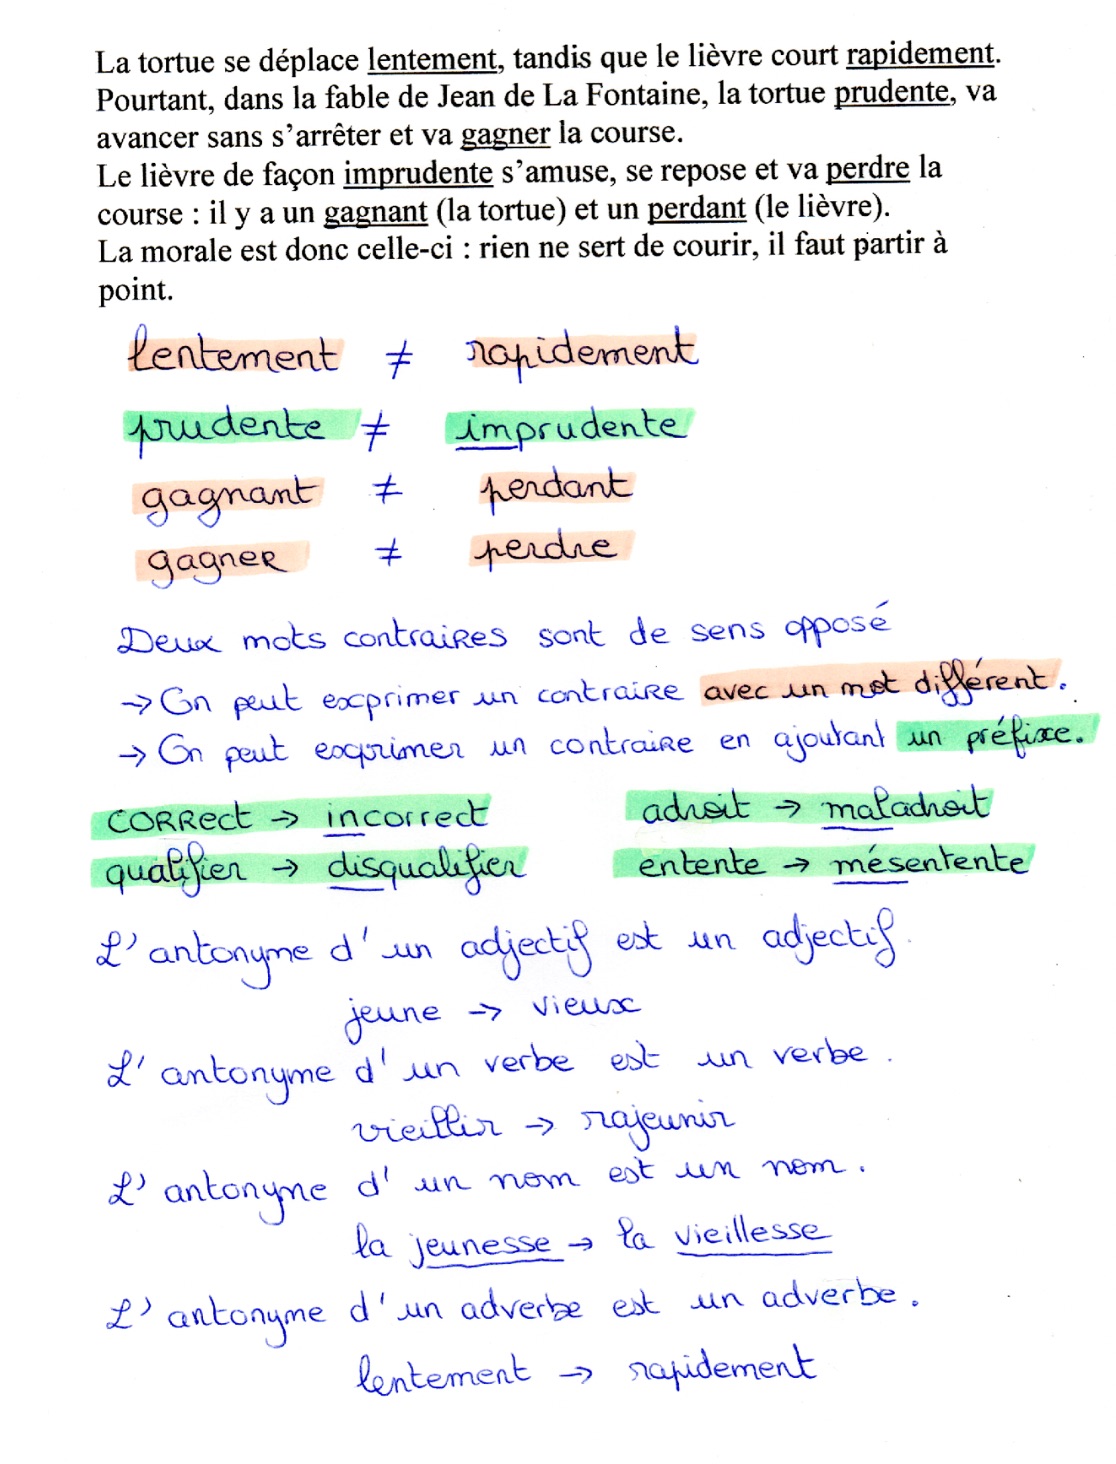 La tortue se déplace lentement, tandis que le lièvre court rapidement.
Pourtant, dans la fable de Jean de La Fontaine, la tortue prudente, va
avancer sans s'arrêter et va gagner la course.
Le lièvre de façon imprudente s'amuse, se repose et va perdre la
course : il y a un gagnant (la tortue) et un perdant (le lièvre).
La morale est donc celle-ci : rien ne sert de courir, il faut partir à
point.
lentement ≠ rapidement
prudente ≠ imprudente
gagnant ≠ perdant
gagner ≠ perdre
Deux mots contraires sont de sens opposé
→ On peut exprimer un contraire avec un mot différent.
→ On peut exprimer un contraire en ajoutant un préfixe.
correct → incorrect adroit → maladroit
qualifier → disqualifier entente → mésentente
L'antonyme d'un adjectif est un adjectif.
jeune → vieux
L'antonyme d'un verbe est un verbe.
vieillir → rajeunir
L'antonyme d'un nom est un nom.
la jeunesse → la vieillesse
L'antonyme d'un adverbe est un adverbe.
lentement → rapidement